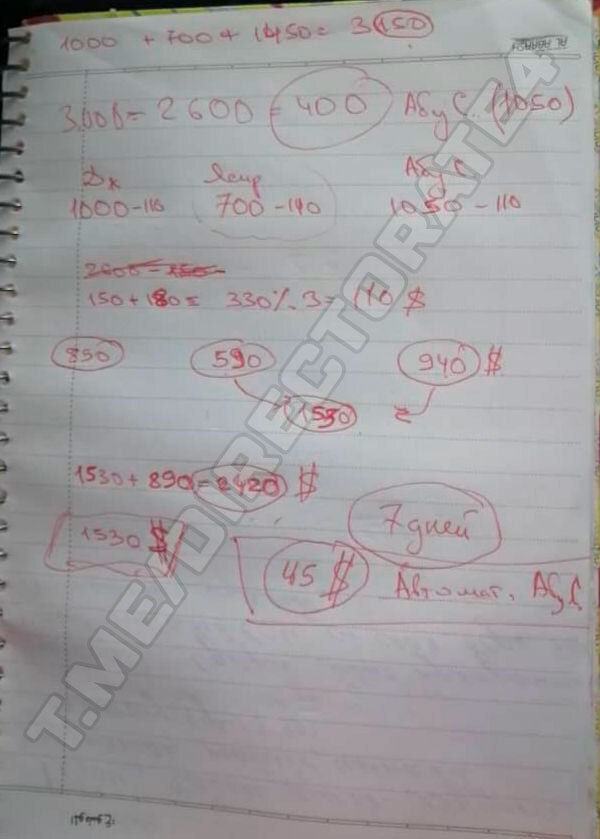 1000 + 700 + 1450 = 3150
3000 - 2600 = 400 Абу С. (1050)
Дж Ясир Абу С
1000-110 700-140 1050-110
150 + 180 = 330% 3 = 110 $
850 590 940 $
1530 =
1530 + 890 = 2420 $
7 дней
1530 $
45 $ Автомат. Абу С
T.ME/DIRECTORATE4